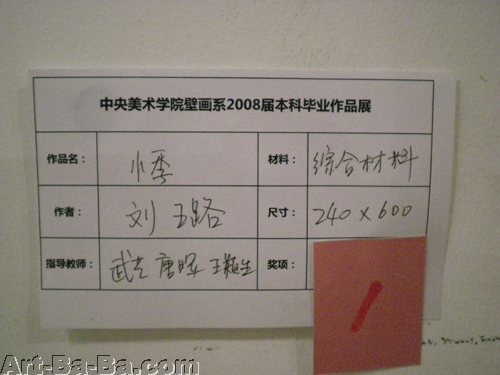 中央美术学院壁画系2008届本科毕业作品展
作品名： 小季 材料： 综合材料
作者： 刘五路 尺寸： 240×600
指导教师： 唐晖 奖项：
1
Art-Ba-Ba.com